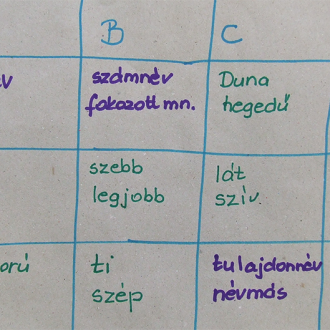 B C
év
számnév
fokozott mn.
Duna
hegedű
szebb
legjobb
lát
szív.
orú
ti
szép
tulajdonnév
névmás